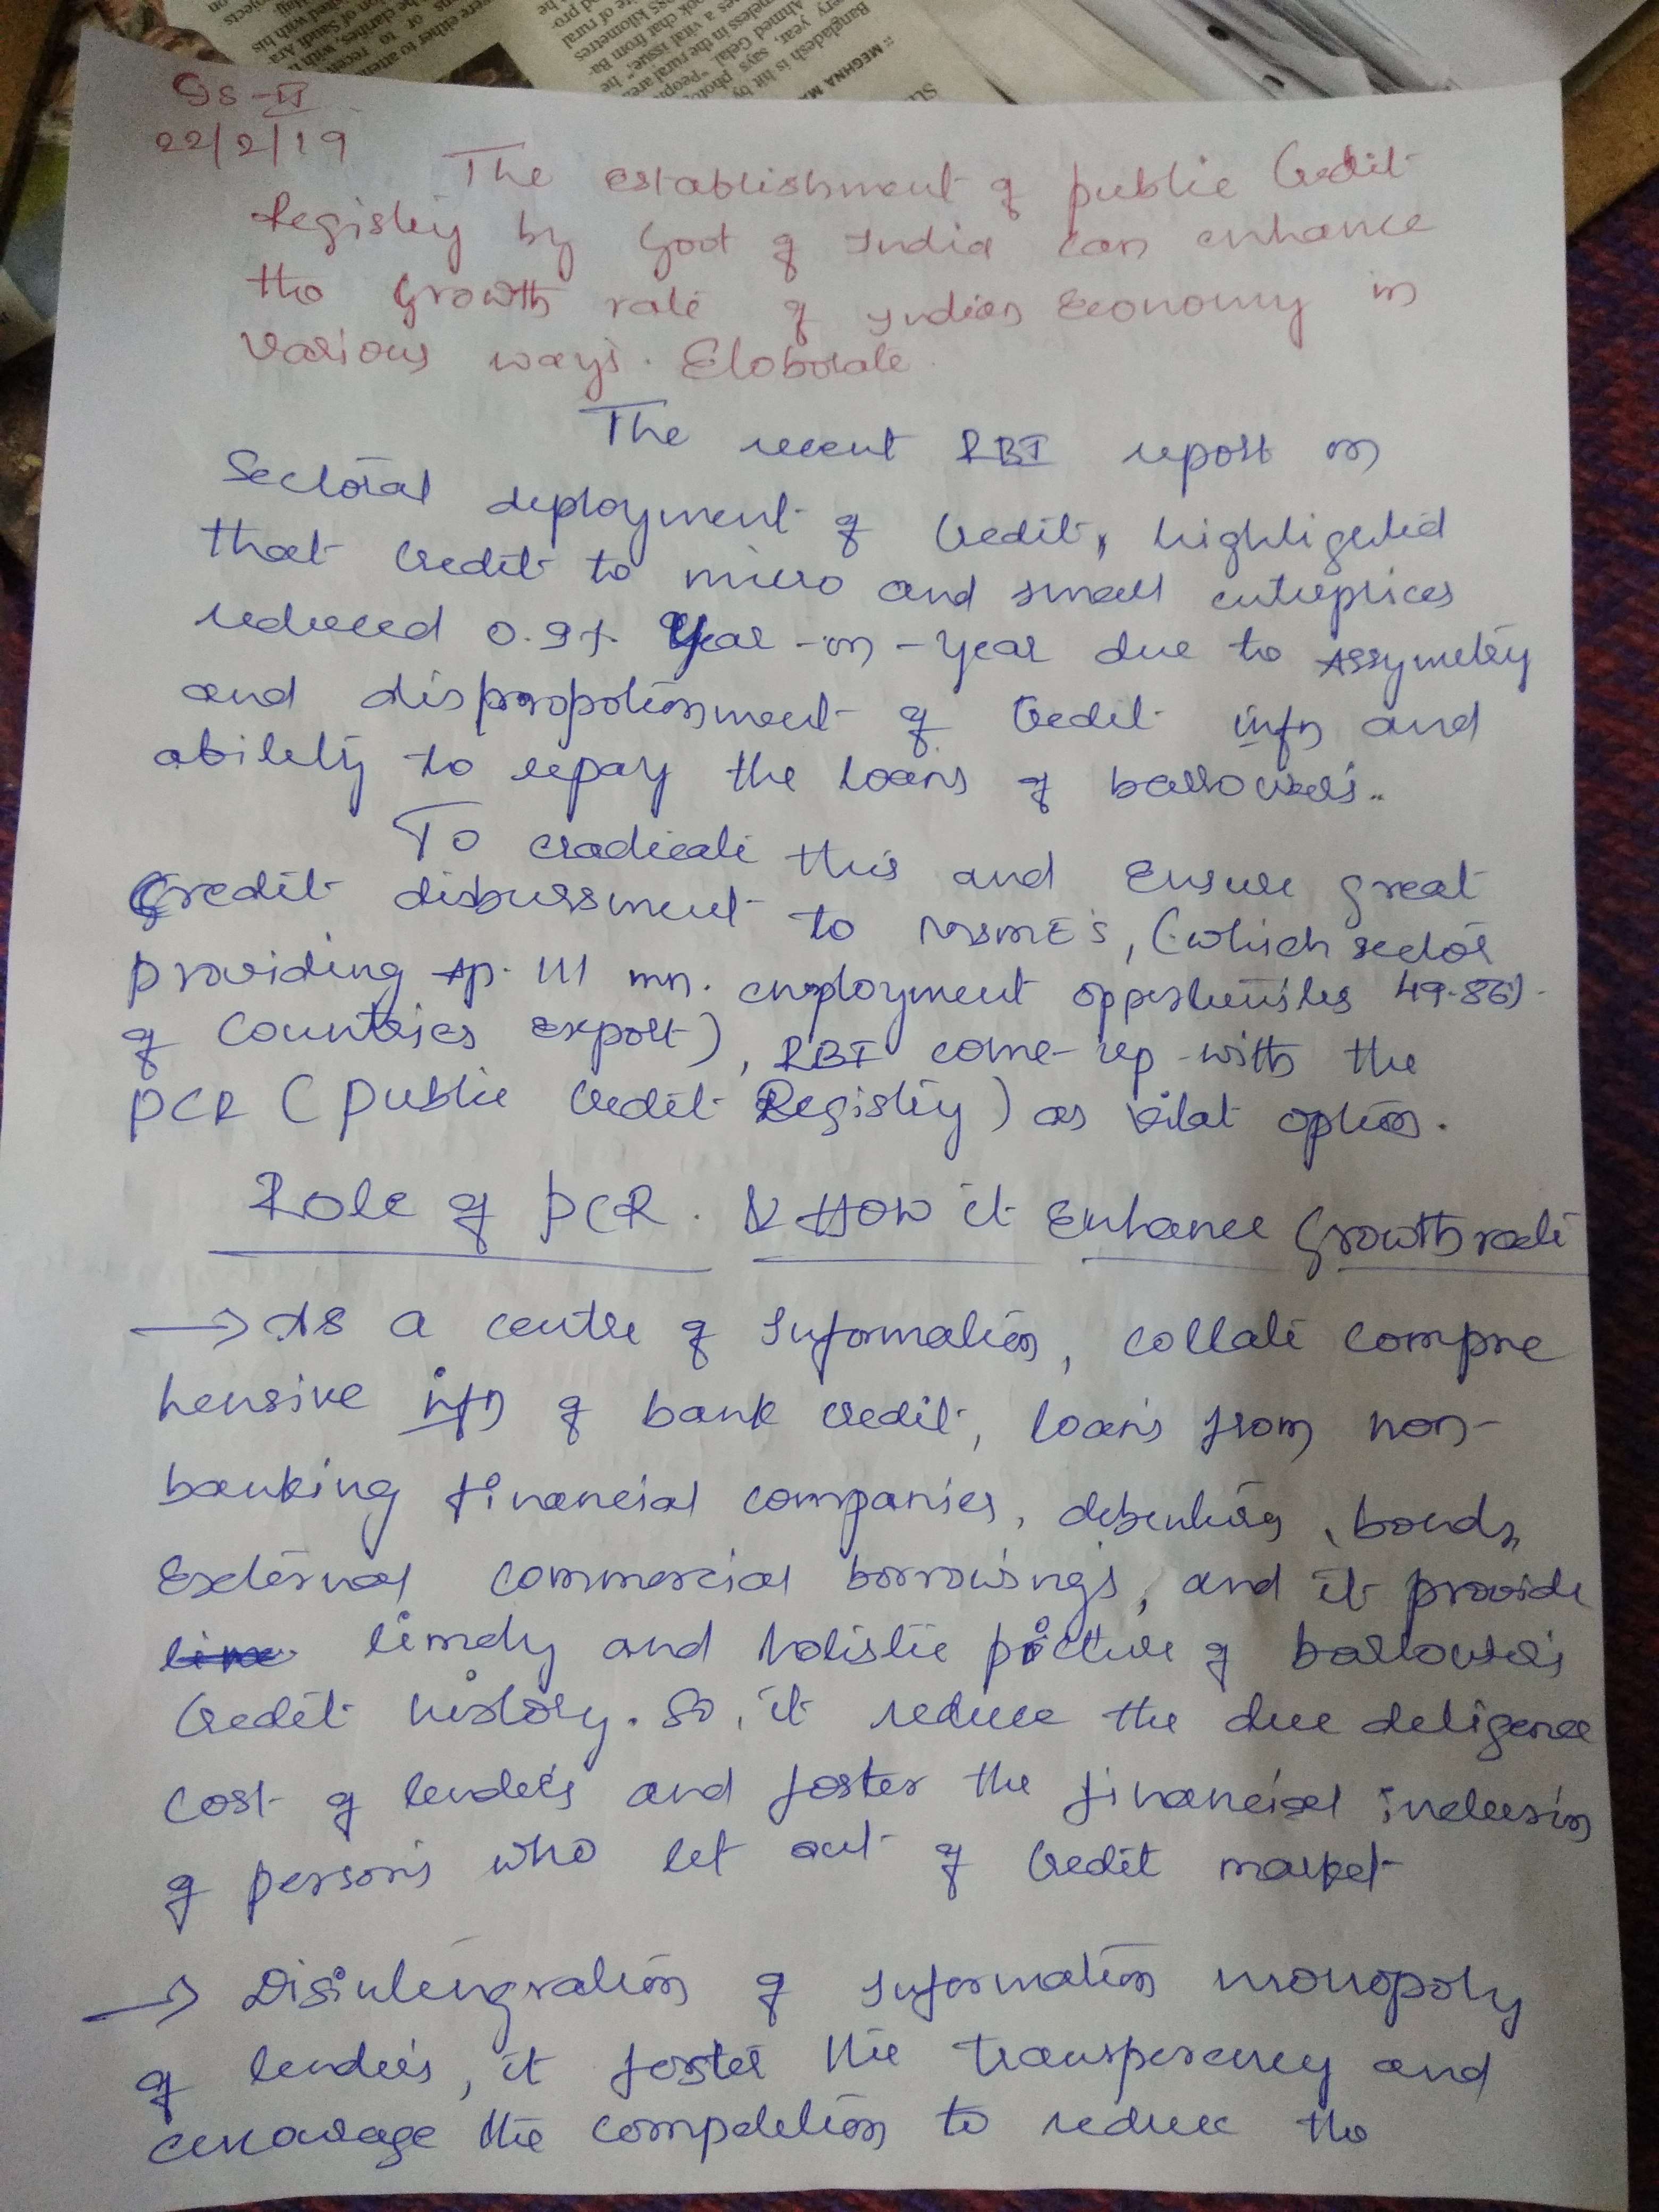 GS-II
22/2/19
The establishment of public Credit
Registry by Govt of India can enhance
the Growth rate of Indian Economy in
various ways. Eloborate.
The recent RBI report on
Sectoral deployment of Credit, highlighted
that Credit to micro and small enterprices
reduced 0.9%. Year-on-Year due to Assymetry
and of Credit infn and
ability to repay the loans of barrowers.
To eradicate this and Ensure great
Credit disburssment to MSME's, (which sector
providing Ap. 111 mn. employment opportunities 49.86%
of Countries export), RBI come-up-with the
PCR (Public Credit Registry) as option.
Role of PCR. & How it Enhance Growth rate
→ As a centre of Information, collate compre
hensive infn of bank credit, loans from non-
banking financial companies, debenturs, bonds,
External commercial borrowsings, and it provide
timely and holistic picture of barrower's
Credit history. So, it reduce the due deligence
cost of lenders and foster the financial inclusion
of persons who let out of Credit market
→ Disintengration of Information monopoly
of lenders, it foster the transperency and
encourage the competetion to reduce the
MEGHNA MA
Bangladesh is hit by